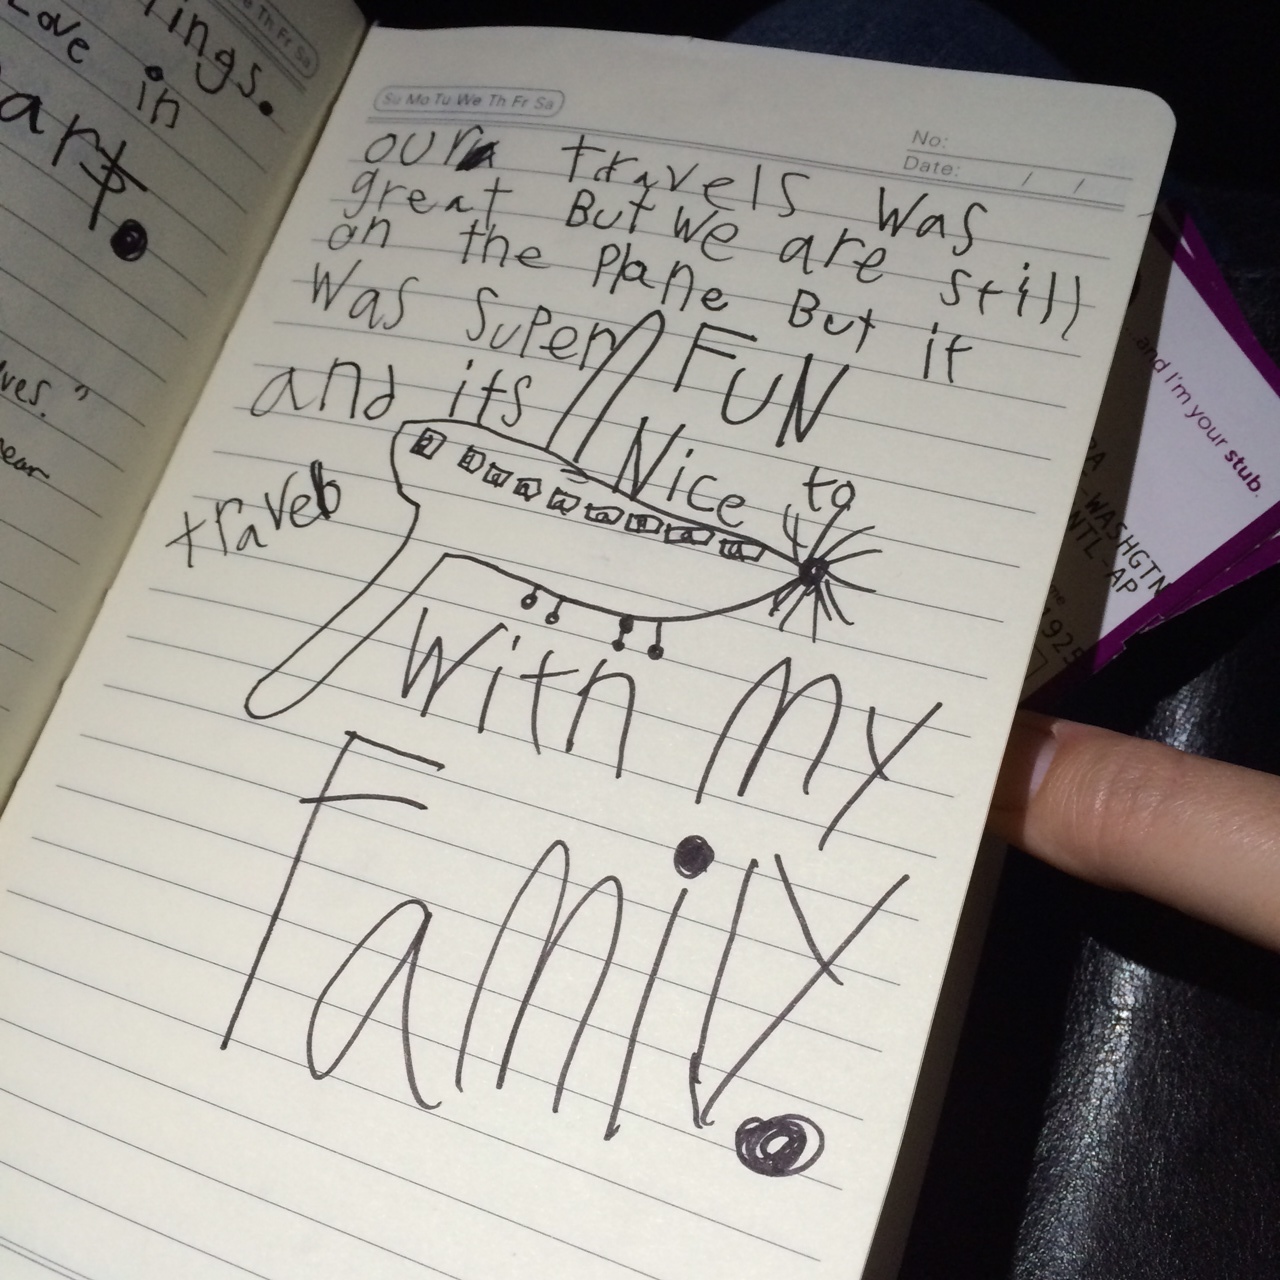 ings.
Love in
art.
lves."
Th Fr Sa
Su Mo Tu We Th Fr Sa
No:
Date: / /
our travels was
great But we are still
on the Plane But it
was super FUN
and its Nice to
travel
with my
Family.
and I'm your stub.
WASHGTN
NTL-AP
1925